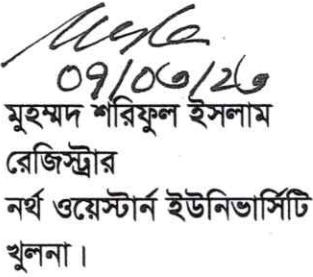 ০৭/০৬/২৬
মুহম্মদ শরিফুল ইসলাম
রেজিস্ট্রার
নর্থ ওয়েস্টার্ন ইউনিভার্সিটি
খুলনা।